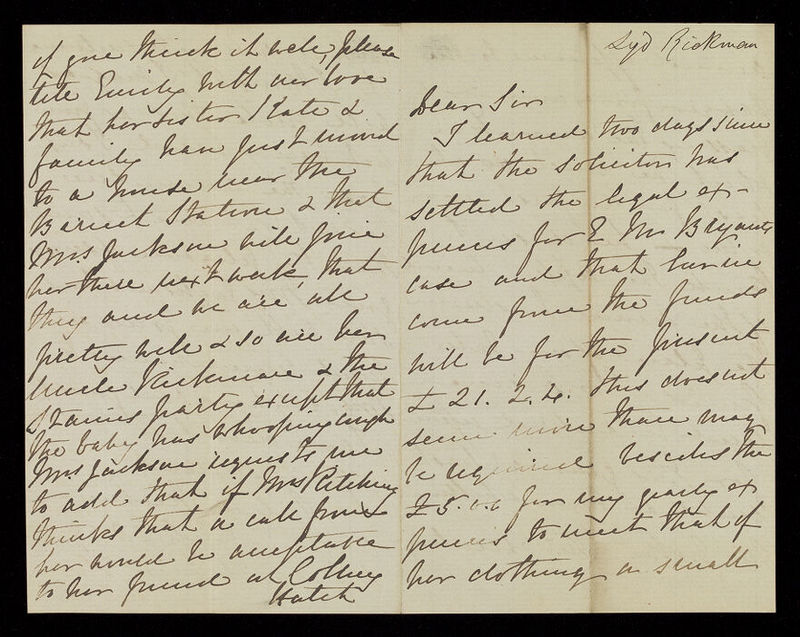 Syd Rickman
Dear Sir
I learned two days since
that the solicitor has
settled the legal ex-
penses for E M Bryants
case and that her in
come from the funds
will be for the present
£ 21. 2. 4. this does not
seem more than may
be required besides the
£ 5. 0. 0 for my yearly ex
penses to meet that of
her clothing, a small
if you think it well, please
tell Emily with our love
that her sister Kate &
family have just moved
to a house near the
Barnet Station & that
Mrs Jackson will join
her there next week, that
they and we are all
pretty well & so are her
Uncle Rickman & the
St party except that
the baby has whooping cough
Mrs Jackson requests me
to add that if Mrs
thinks that a call from
her would be acceptable
to her friend at Colney
Hatch